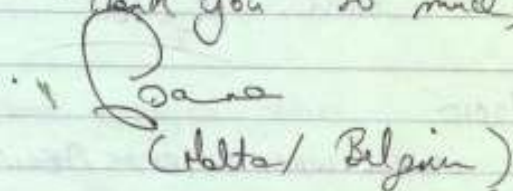 thank you so much,
Ioana
(Malta/ Belgium)